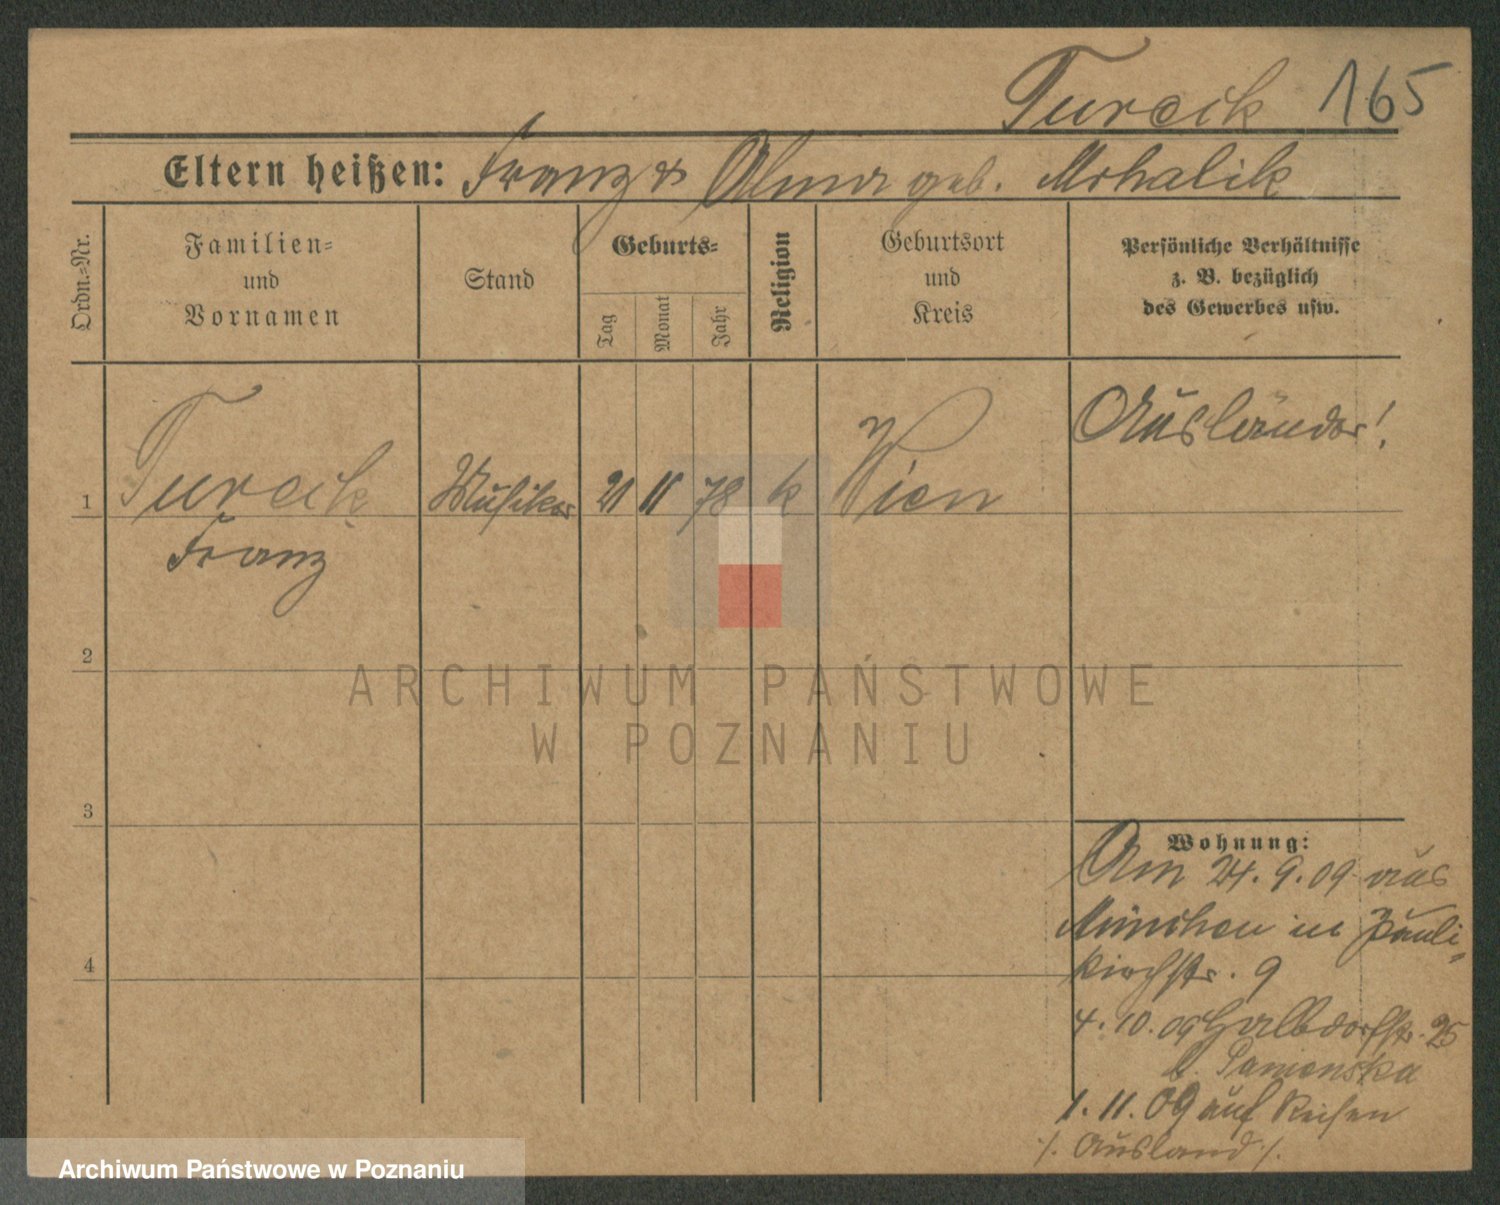 Turcik 165
Eltern heißen: Franz & Alma geb. Mihalik
Ordn.-Nr.
Familien-
und
Vornamen
Stand
Geburts-
Tag
Monat
Jahr
Religion
Geburtsort
und
Kreis
Persönliche Verhältnisse
z. B. bezüglich
des Gewerbes usw.
1 Turcik Musiker 21 11 78 k Wien Ausländer!
Franz
2
3
4
Wohnung:
Am 24.9.09 aus
München in Pauli-
kirchstr. 9
4.10.09 Halbdorfstr. 25
b.
1.11.09 auf Reisen
./. Ausland ./.
ARCHIWUM PAŃSTWOWE
W POZNANIU
Archiwum Państwowe w Poznaniu